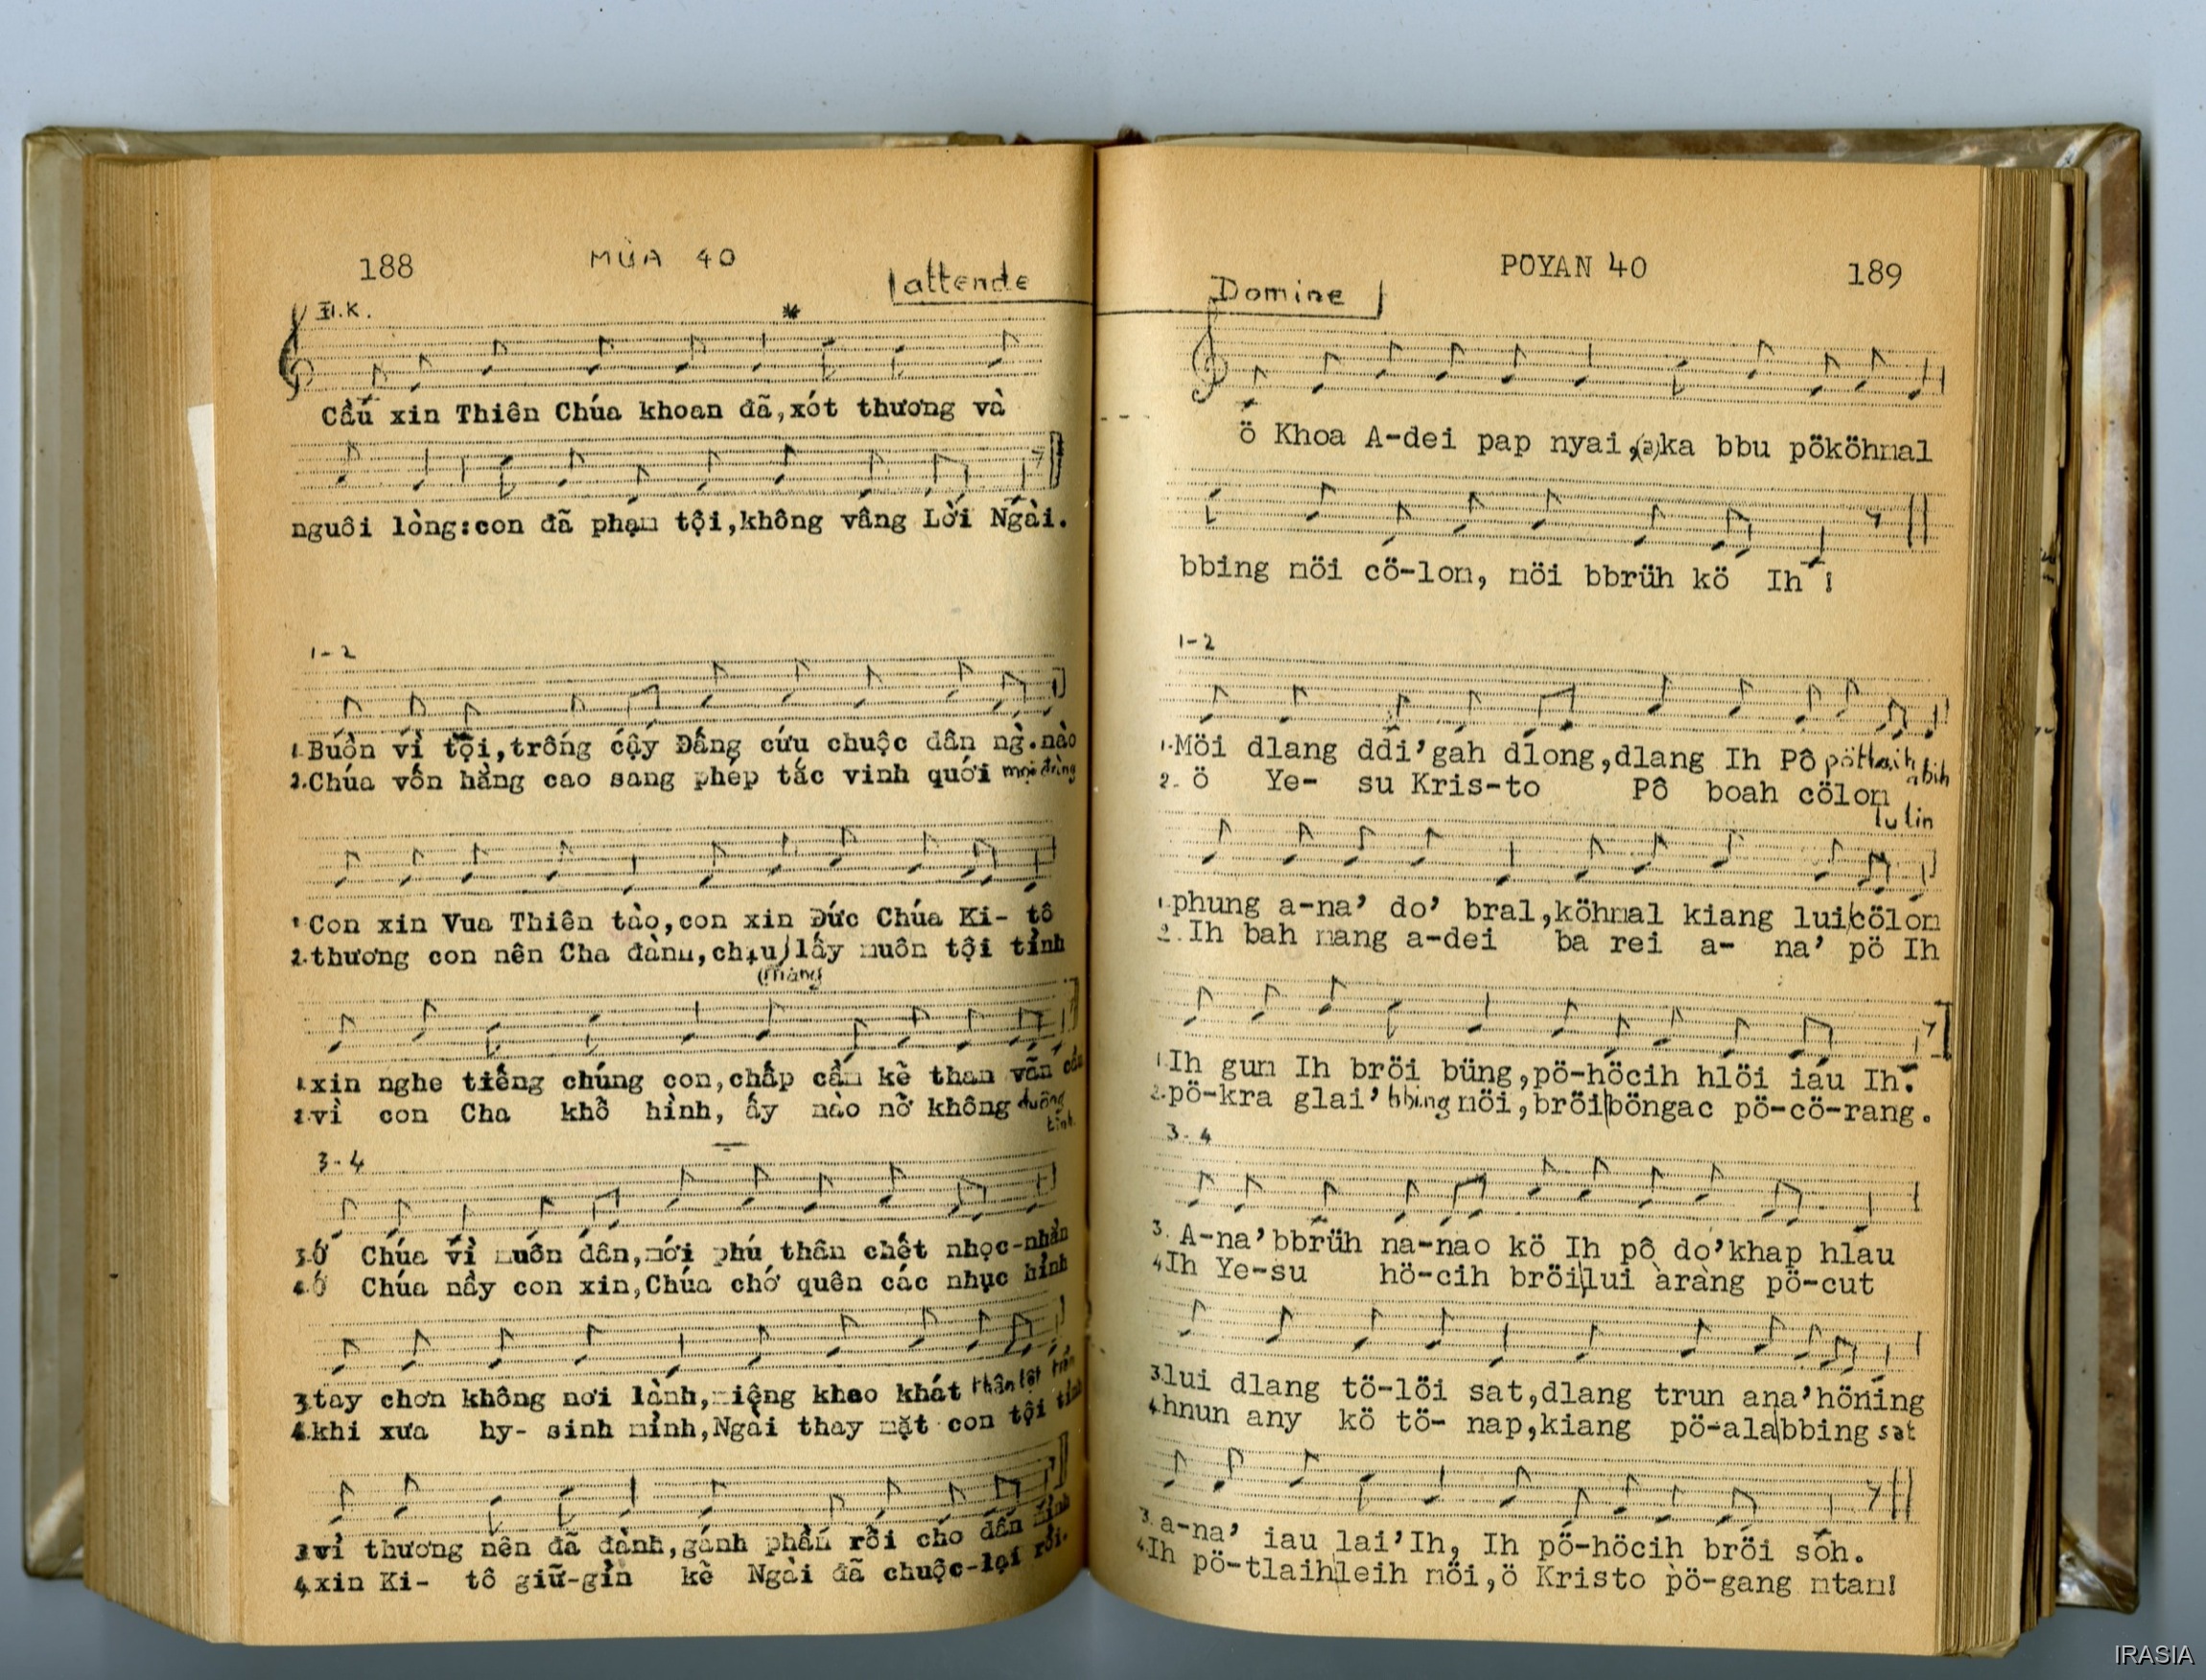 188 MÙA 40
attende
II.K.
Cầu xin Thiên Chúa khoan đã,xót thương và
nguôi lòng:con đã phạm tội,không vâng Lời Ngài.
1-2
1.Buồn vì tội,trông cậy Đấng cứu chuộc dân ng.nào
2.Chúa vốn hằng cao sang phép tắc vinh quới mọi đàng
1.Con xin Vua Thiên tào,con xin Đức Chúa Ki- tô
2.thương con nên Cha đành,chịu lấy muôn tội tình
(mang
1.xin nghe tiếng chúng con,chấp cầm kẻ than vãn
2.vì con Cha khổ hình, ấy nào nở không dưông tình
3-4
3.Ớ Chúa vì muôn dân,mới phú thân chết nhọc-nhằn
4.Ớ Chúa nầy con xin,Chúa chớ quên các nhục hình
3.tay chơn không nơi lành,miệng khao khát thân lột
4.khi xưa hy- sinh mình,Ngài thay mặt con tội tình
3.vì thương nên đã đành,gánh phần rỗi cho dân
4.xin Ki- tô giữ-gìn kẻ Ngài đã chuộc-lại rồi.
PÖYAN 40 189
Domine
ö Khoa A-dei pap nyai,(a)ka bbu pököhmal
bbing möi cö-lom, möi bbrüh kö Ih !
1-2
1.Möi dlang ddi'gah dlong,dlang Ih Pô pötlaih abih
2. ö Ye- su Kris-to Pô boah cölom
lu lin
1.phung a-na' do' bral,köhmal kiang lui cölom
2.Ih bah mang a-dei ba rei a- na' pö Ih
1.Ih gum Ih bröi büng,pö-höcih hlöi iâu Ih.
2.pö-kra glai' bbing möi,bröi böngac pö-cö-rang.
3-4
3. A-na'bbrüh na-nao kö Ih pô do'khap hlâu
4.Ih Ye-su hö-cih bröi lui àràng pö-cut
3.lui dlang tö-löi sat,dlang trun ana'höning
4.hnun any kö tö- nap,kiang pö-ala bbing sat
3. a-na' iau lai'Ih, Ih pö-höcih bröi sôh.
4.Ih pö-tlaih leih möi,ö Kristo pö-gang mtam!
IRASIA